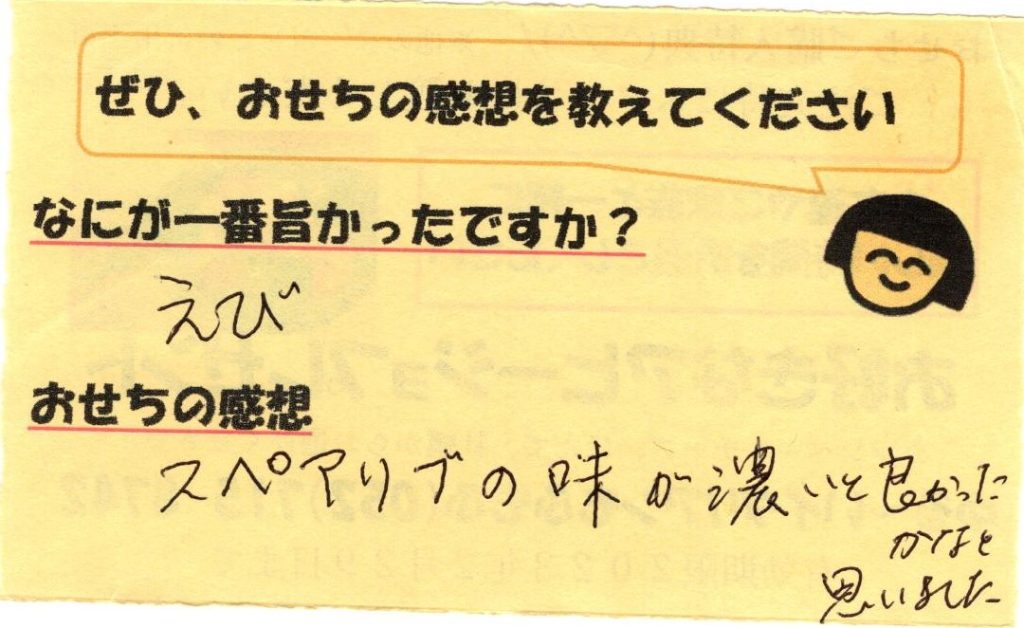 ぜひ、おせちの感想を教えてください
なにが一番旨かったですか？
えび
おせちの感想
スペアリブの味が濃いと良かった
かなと
思いました